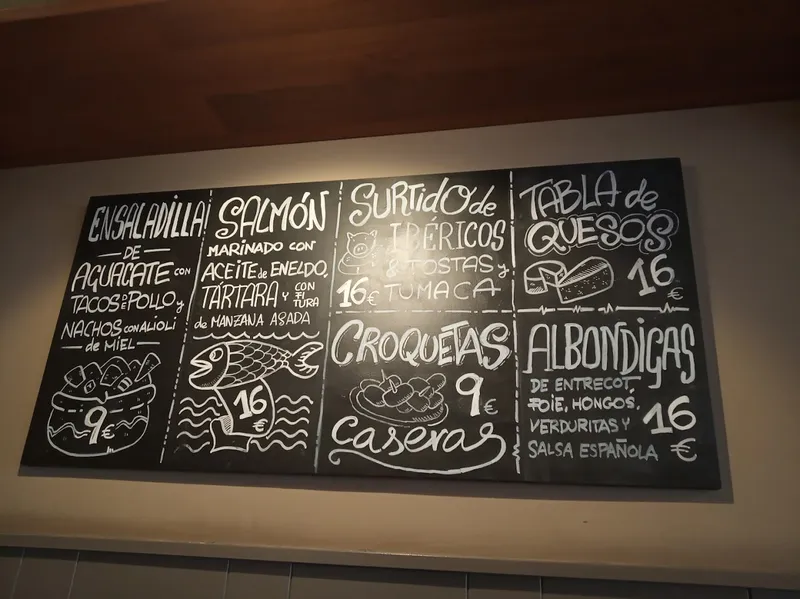 ENSALADILLA
DE
AGUACATE CON
TACOS DE POLLO y
NACHOS CON ALIOLI
de MIEL
9€
SALMÓN
MARINADO CON
ACEITE de ENELDO,
TÁRTARA Y CON
FITURA
de MANZANA ASADA
16€
SURTIDO de
IBÉRICOS
& TOSTAS y
16€ TUMACA
CROQUETAS
9€
Caseras
TABLA de
QUESOS
16€
ALBONDIGAS
DE ENTRECOT,
FOIE, HONGOS,
VERDURITAS Y
SALSA ESPAÑOLA
16€